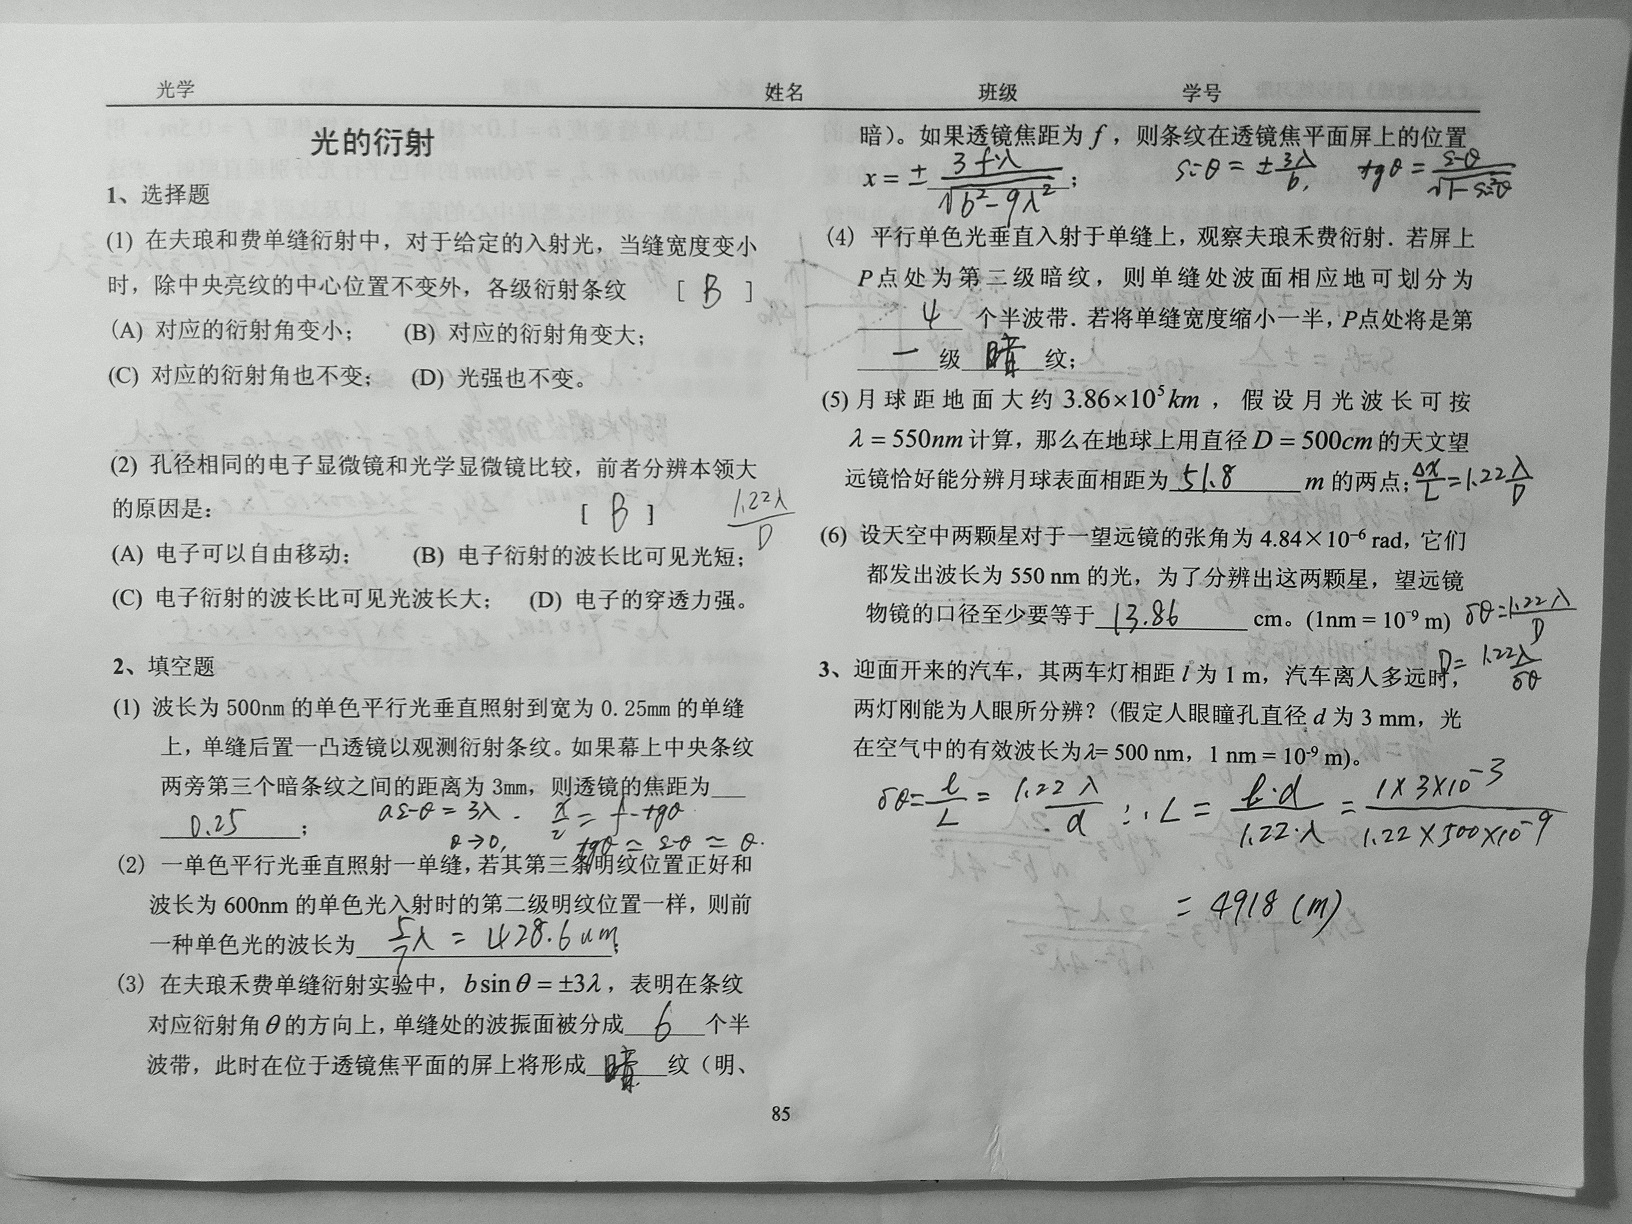 光学 姓名 班级 学号
光的衍射
1、选择题
(1) 在夫琅和费单缝衍射中，对于给定的入射光，当缝宽度变小
时，除中央亮纹的中心位置不变外，各级衍射条纹 [ B ]
(A) 对应的衍射角变小； (B) 对应的衍射角变大；
(C) 对应的衍射角也不变； (D) 光强也不变。
(2) 孔径相同的电子显微镜和光学显微镜比较，前者分辨本领大
的原因是： [ B ] 1.22λ/D
(A) 电子可以自由移动； (B) 电子衍射的波长比可见光短；
(C) 电子衍射的波长比可见光波长大； (D) 电子的穿透力强。
2、填空题
(1) 波长为500nm的单色平行光垂直照射到宽为0.25mm的单缝
上，单缝后置一凸透镜以观测衍射条纹。如果幕上中央条纹
两旁第三个暗条纹之间的距离为3mm，则透镜的焦距为
0.25 ; a sinθ = 3λ. x/2 = f·tgθ
θ→0, tgθ ≃ sinθ ≃ θ.
(2) 一单色平行光垂直照射一单缝，若其第三条明纹位置正好和
波长为600nm的单色光入射时的第二级明纹位置一样，则前
一种单色光的波长为 5/7 λ = 428.6 nm;
(3) 在夫琅禾费单缝衍射实验中，b sin θ = ±3λ，表明在条纹
对应衍射角θ的方向上，单缝处的波振面被分成 6 个半
波带，此时在位于透镜焦平面的屏上将形成 暗 纹（明、
暗）。如果透镜焦距为 f，则条纹在透镜焦平面屏上的位置
x = ± 3f·λ/√(b²-9λ²) ; sinθ = ± 3λ/b, tgθ = sinθ/√(1-sin²θ)
(4) 平行单色光垂直入射于单缝上，观察夫琅禾费衍射．若屏上
P点处为第二级暗纹，则单缝处波面相应地可划分为
4 个半波带．若将单缝宽度缩小一半，P点处将是第
一 级 暗 纹；
(5) 月球距地面大约 3.86×10⁵km，假设月光波长可按
λ = 550nm 计算，那么在地球上用直径 D = 500cm 的天文望
远镜恰好能分辨月球表面相距为 51.8 m 的两点; Δx/L = 1.22 λ/D
(6) 设天空中两颗星对于一望远镜的张角为 4.84×10⁻⁶ rad，它们
都发出波长为 550 nm 的光，为了分辨出这两颗星，望远镜
物镜的口径至少要等于 13.86 cm。(1nm = 10⁻⁹ m) δθ = 1.22λ/D
D = 1.22λ/δθ
3、迎面开来的汽车，其两车灯相距 l 为 1 m，汽车离人多远时，
两灯刚能为人眼所分辨？(假定人眼瞳孔直径 d 为 3 mm，光
在空气中的有效波长为λ= 500 nm，1 nm = 10⁻⁹ m)。
δθ = l/L = 1.22 λ/d ∴ L = l·d/1.22·λ = 1×3×10⁻³/1.22×500×10⁻⁹
= 4918 (m)
85